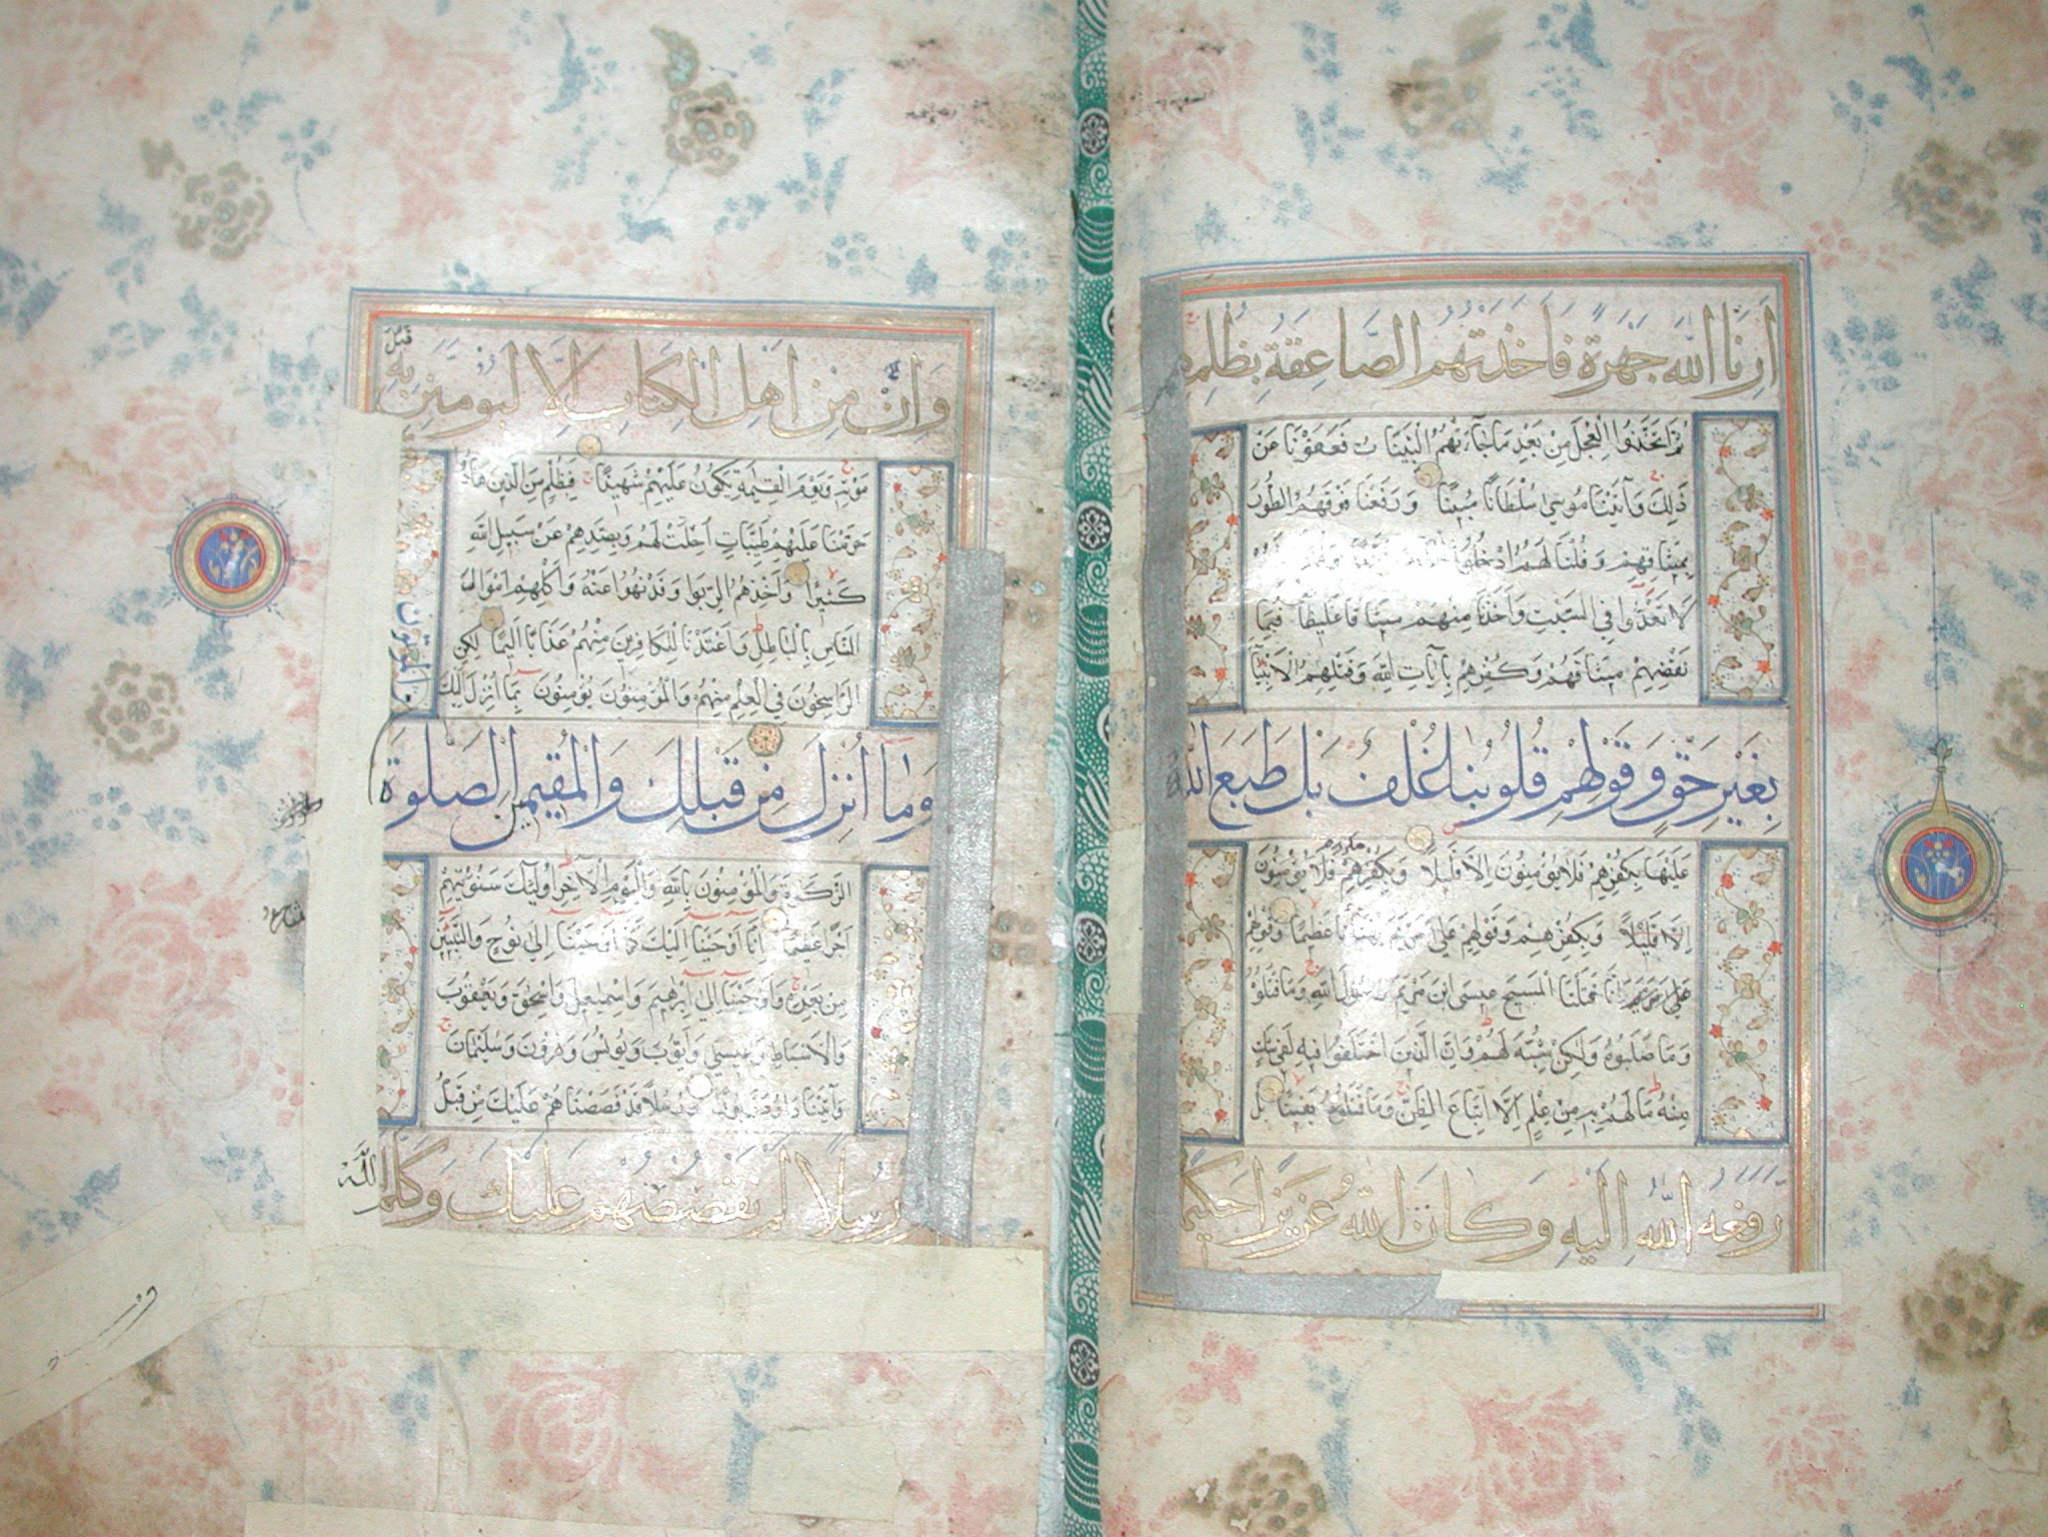 اَرِنَا اللّٰهَ جَهْرَةً فَاَخَذَتْهُمُ الصَّاعِقَةُ بِظُلْمِهِم
ثُمَّ اتَّخَذُوا الْعِجْلَ مِنْ بَعْدِ مَا جَآءَتْهُمُ الْبَيِّنَاتُ فَعَفَوْنَا عَنْ
ذَلِكَ وَآتَيْنَا مُوسَى سُلْطَانًا مُبِينًا وَرَفَعْنَا فَوْقَهُمُ الطُّورَ
بِمِيثَاقِهِمْ وَقُلْنَا لَهُمُ ادْخُلُوا
لَا تَعْدُوا فِي السَّبْتِ وَاَخَذْنَا مِنْهُمْ مِيثَاقًا غَلِيظًا فَبِمَا
نَقْضِهِمْ مِيثَاقَهُمْ وَكُفْرِهِمْ بِآيَاتِ اللّٰهِ وَقَتْلِهِمُ الْاَنْبِيَآءَ
بِغَيْرِ حَقٍّ وَقَوْلِهِمْ قُلُوبُنَا غُلْفٌ بَلْ طَبَعَ اللّٰهُ
عَلَيْهَا بِكُفْرِهِمْ فَلَا يُؤْمِنُونَ اِلَّا قَلِيلًا وَبِكُفْرِهِمْ فَلَا يُؤْمِنُونَ
اِلَّا قَلِيلًا وَبِكُفْرِهِمْ وَقَوْلِهِمْ عَلَى مَرْيَمَ بُهْتَانًا عَظِيمًا وَقَوْلِهِمْ
عَلَى مَرْيَمَ اِنَّا قَتَلْنَا الْمَسِيحَ عِيسَى ابْنَ مَرْيَمَ رَسُولَ اللّٰهِ وَمَا قَتَلُوهُ
وَمَا صَلَبُوهُ وَلَكِنْ شُبِّهَ لَهُمْ وَاِنَّ الَّذِينَ اخْتَلَفُوا فِيهِ لَفِي شَكٍّ
مِنْهُ مَا لَهُمْ بِهِ مِنْ عِلْمٍ اِلَّا اتِّبَاعَ الظَّنِّ وَمَا قَتَلُوهُ يَقِينًا بَلْ
رَفَعَهُ اللّٰهُ اِلَيْهِ وَكَانَ اللّٰهُ عَزِيزًا حَكِيمًا
وَاِنْ مِنْ اَهْلِ الْكِتَابِ اِلَّا لَيُؤْمِنَنَّ بِهِ قَبْلَ
مَوْتِهِ وَيَوْمَ الْقِيٰمَةِ يَكُونُ عَلَيْهِمْ شَهِيدًا فَبِظُلْمٍ مِنَ الَّذِينَ هَادُوا
حَرَّمْنَا عَلَيْهِمْ طَيِّبَاتٍ اُحِلَّتْ لَهُمْ وَبِصَدِّهِمْ عَنْ سَبِيلِ اللّٰهِ
كَثِيرًا وَاَخْذِهِمُ الرِّبَوا وَقَدْ نُهُوا عَنْهُ وَاَكْلِهِمْ اَمْوَالَ
النَّاسِ بِالْبَاطِلِ وَاَعْتَدْنَا لِلْكَافِرِينَ مِنْهُمْ عَذَابًا اَلِيمًا لَكِنِ
الرَّاسِخُونَ فِي الْعِلْمِ مِنْهُمْ وَالْمُؤْمِنُونَ يُؤْمِنُونَ بِمَا اُنْزِلَ اِلَيْكَ
وَمَا اُنْزِلَ مِنْ قَبْلِكَ وَالْمُقِيمِينَ الصَّلٰوةَ
والموتون
الزَّكٰوةَ وَالْمُؤْمِنُونَ بِاللّٰهِ وَالْيَوْمِ الْاٰخِرِ اُولٰئِكَ سَنُؤْتِيهِمْ
اَجْرًا عَظِيمًا اِنَّا اَوْحَيْنَا اِلَيْكَ كَمَا اَوْحَيْنَا اِلَى نُوحٍ وَالنَّبِيِّينَ
مِنْ بَعْدِهِ وَاَوْحَيْنَا اِلَى اِبْرٰهِيمَ وَاِسْمٰعِيلَ وَاِسْحٰقَ وَيَعْقُوبَ
وَالْاَسْبَاطِ وَعِيسَى وَاَيُّوبَ وَيُونُسَ وَهٰرُونَ وَسُلَيْمَانَ
وَآتَيْنَا دَاوُدَ زَبُورًا وَرُسُلًا قَدْ قَصَصْنَاهُمْ عَلَيْكَ مِنْ قَبْلُ
وَرُسُلًا لَمْ نَقْصُصْهُمْ عَلَيْكَ وَكَلَّمَ اللّٰهُ